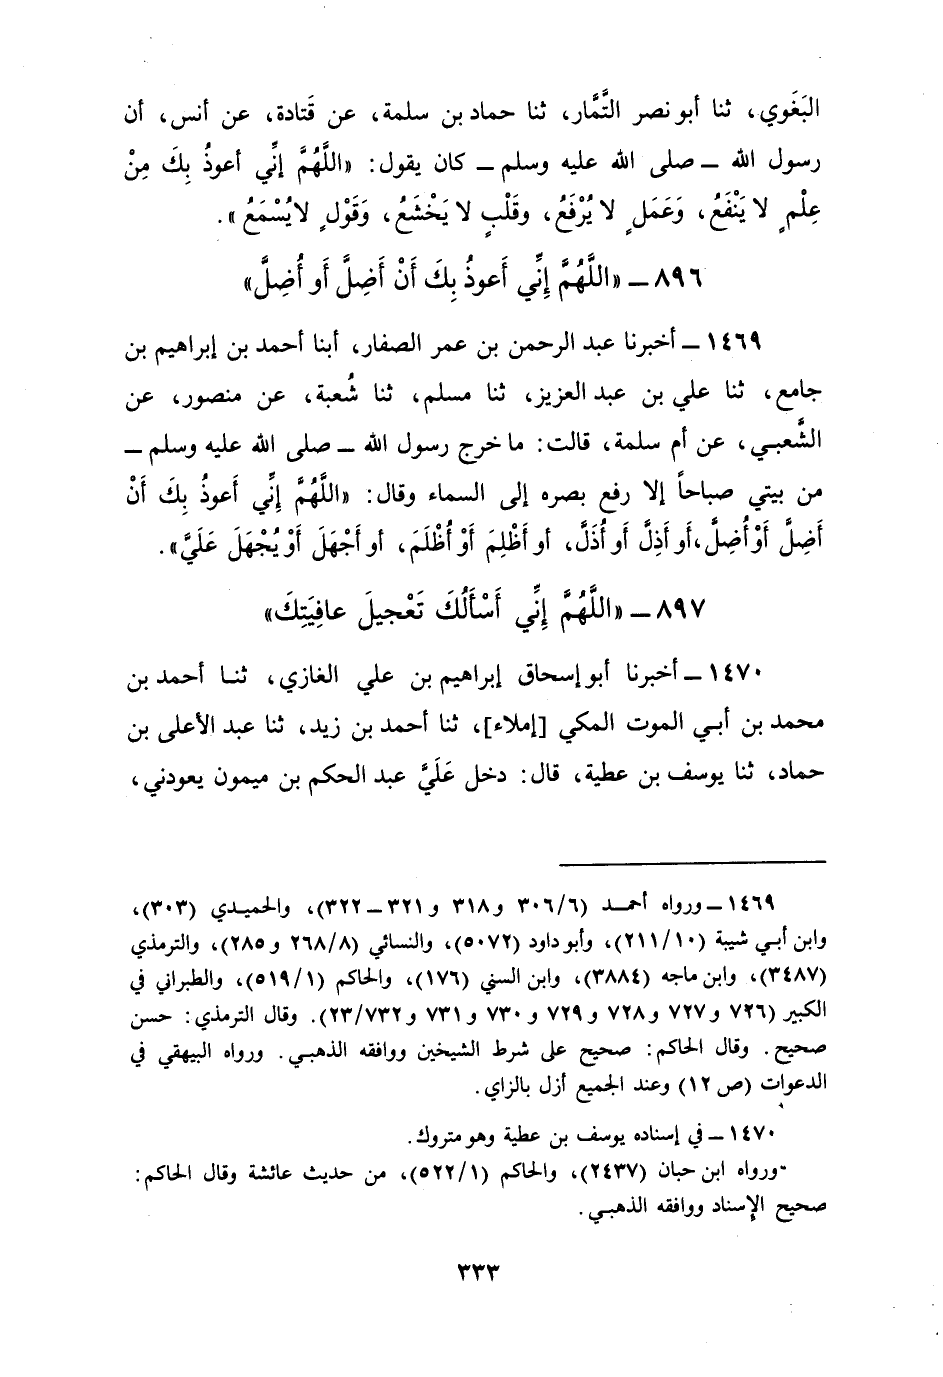 البَغَوي، ثنا أبو نصر التَّمَّار، ثنا حماد بن سلمة، عن قَتادة، عن أنس، أن
رسول الله ــ صلى الله عليه وسلم ــ كان يقول: «اللَّهُمَّ إنِّي أعوذُ بِكَ مِنْ
عِلْمٍ لا يَنْفَعُ، وَعَمَلٍ لا يُرْفَعُ، وقَلْبٍ لا يَخْشَعُ، وَقَوْلٍ لا يُسْمَعُ».
٨٩٦ ــ «اللَّهُمَّ إِنِّي أَعوذُ بِكَ أَنْ أَضِلَّ أَو أُضِلَّ»
١٤٦٩ ــ أخبرنا عبد الرحمن بن عمر الصفار، أبنا أحمد بن إبراهيم بن
جامع، ثنا علي بن عبد العزيز، ثنا مسلم، ثنا شُعبة، عن منصور، عن
الشَّعبي، عن أم سلمة، قالت: ما خرج رسول الله ــ صلى الله عليه وسلم ــ
من بيتي صباحاً إلا رفع بصره إلى السماء وقال: «اللَّهُمَّ إِنِّي أَعوذُ بِكَ أَنْ
أَضِلَّ أَوْ أُضِلَّ، أَو أَذِلَّ أَو أُذَلَّ، أو أَظْلِمَ أَوْ أُظْلَمَ، أو أَجْهَلَ أَوْ يُجْهَلَ عَلَيَّ».
٨٩٧ ــ «اللَّهُمَّ إِنِّي أَسْأَلُكَ تَعْجيلَ عافِيَتِكَ»
١٤٧٠ ــ أخبرنا أبو إسحاق إبراهيم بن علي الغازي، ثنا أحمد بن
محمد بن أبي الموت المكي [إملاء]، ثنا أحمد بن زيد، ثنا عبد الأعلى بن
حماد، ثنا يوسف بن عطية، قال: دخل عَلَيَّ عبد الحكم بن ميمون يعودني،
١٤٦٩ ــ ورواه أحمد (٣٠٦/٦ و ٣١٨ و ٣٢١ ــ ٣٢٢)، والحميدي (٣٠٣)،
وابن أبي شيبة (٢١١/١٠)، وأبو داود (٥٠٧٢)، والنسائي (٢٦٨/٨ و ٢٨٥)، والترمذي
(٣٤٨٧)، وابن ماجه (٣٨٨٤)، وابن السني (١٧٦)، والحاكم (٥١٩/١)، والطبراني في
الكبير (٧٢٦ و ٧٢٧ و ٧٢٨ و ٧٢٩ و ٧٣٠ و ٧٣١ و ٢٣/٧٣٢). وقال الترمذي: حسن
صحيح. وقال الحاكم: صحيح على شرط الشيخين ووافقه الذهبي. ورواه البيهقي في
الدعوات (ص ١٢) وعند الجميع أزل بالزاي.
١٤٧٠ ــ في إسناده يوسف بن عطية وهو متروك.
ورواه ابن حبان (٢٤٣٧)، والحاكم (٥٢٢/١)، من حديث عائشة وقال الحاكم:
صحيح الإسناد ووافقه الذهبي.
٣٣٣